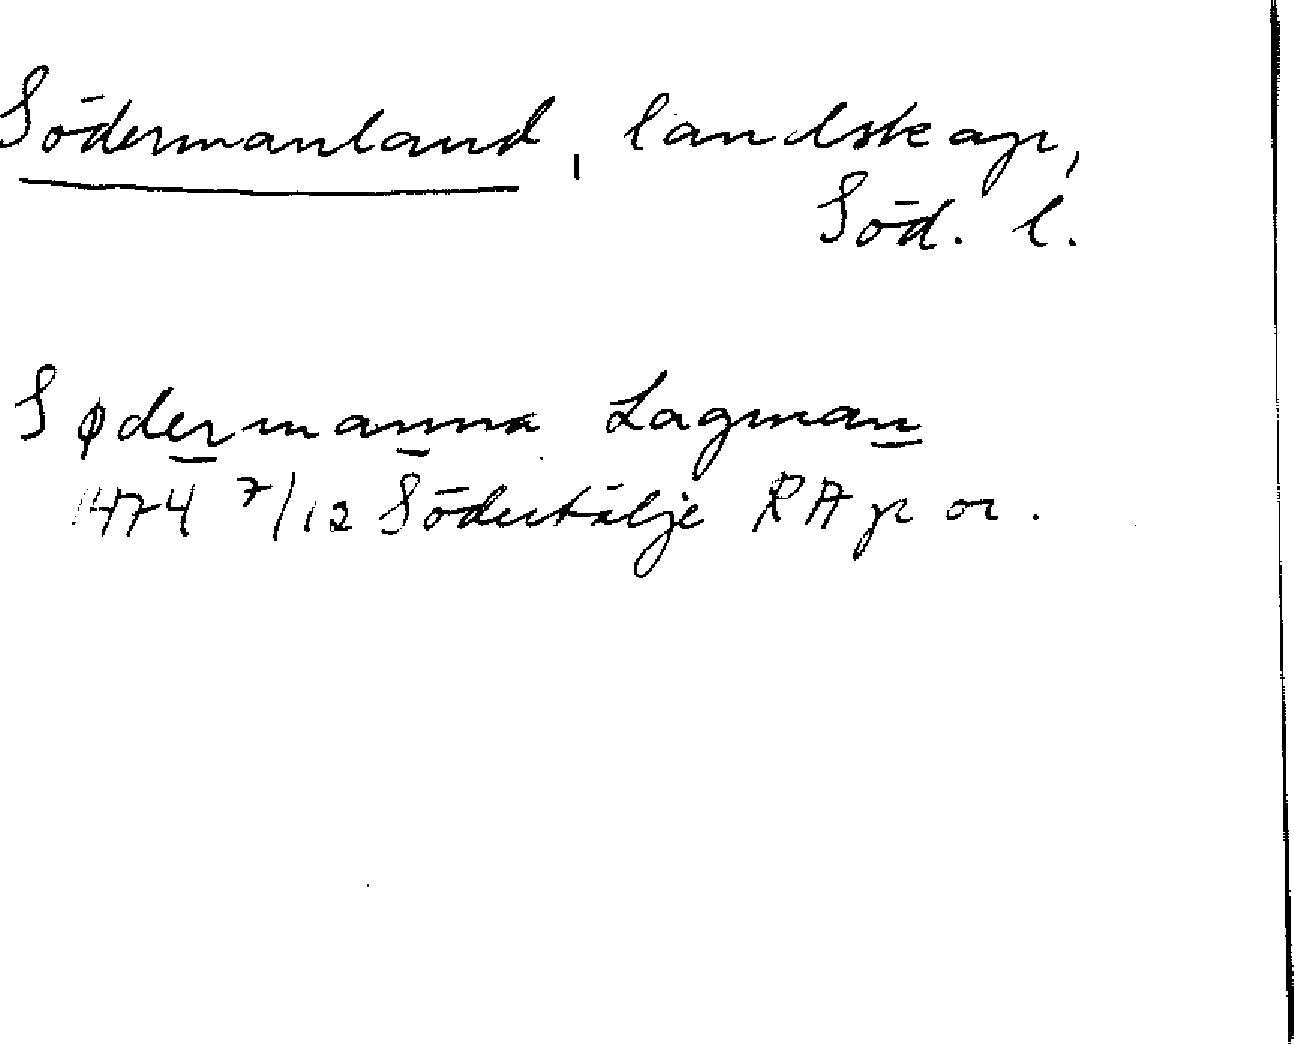 Södermanland, landskap,
Söd. l.
Sødermanna Lagman
1474 7/12 Södertälje RAp or.